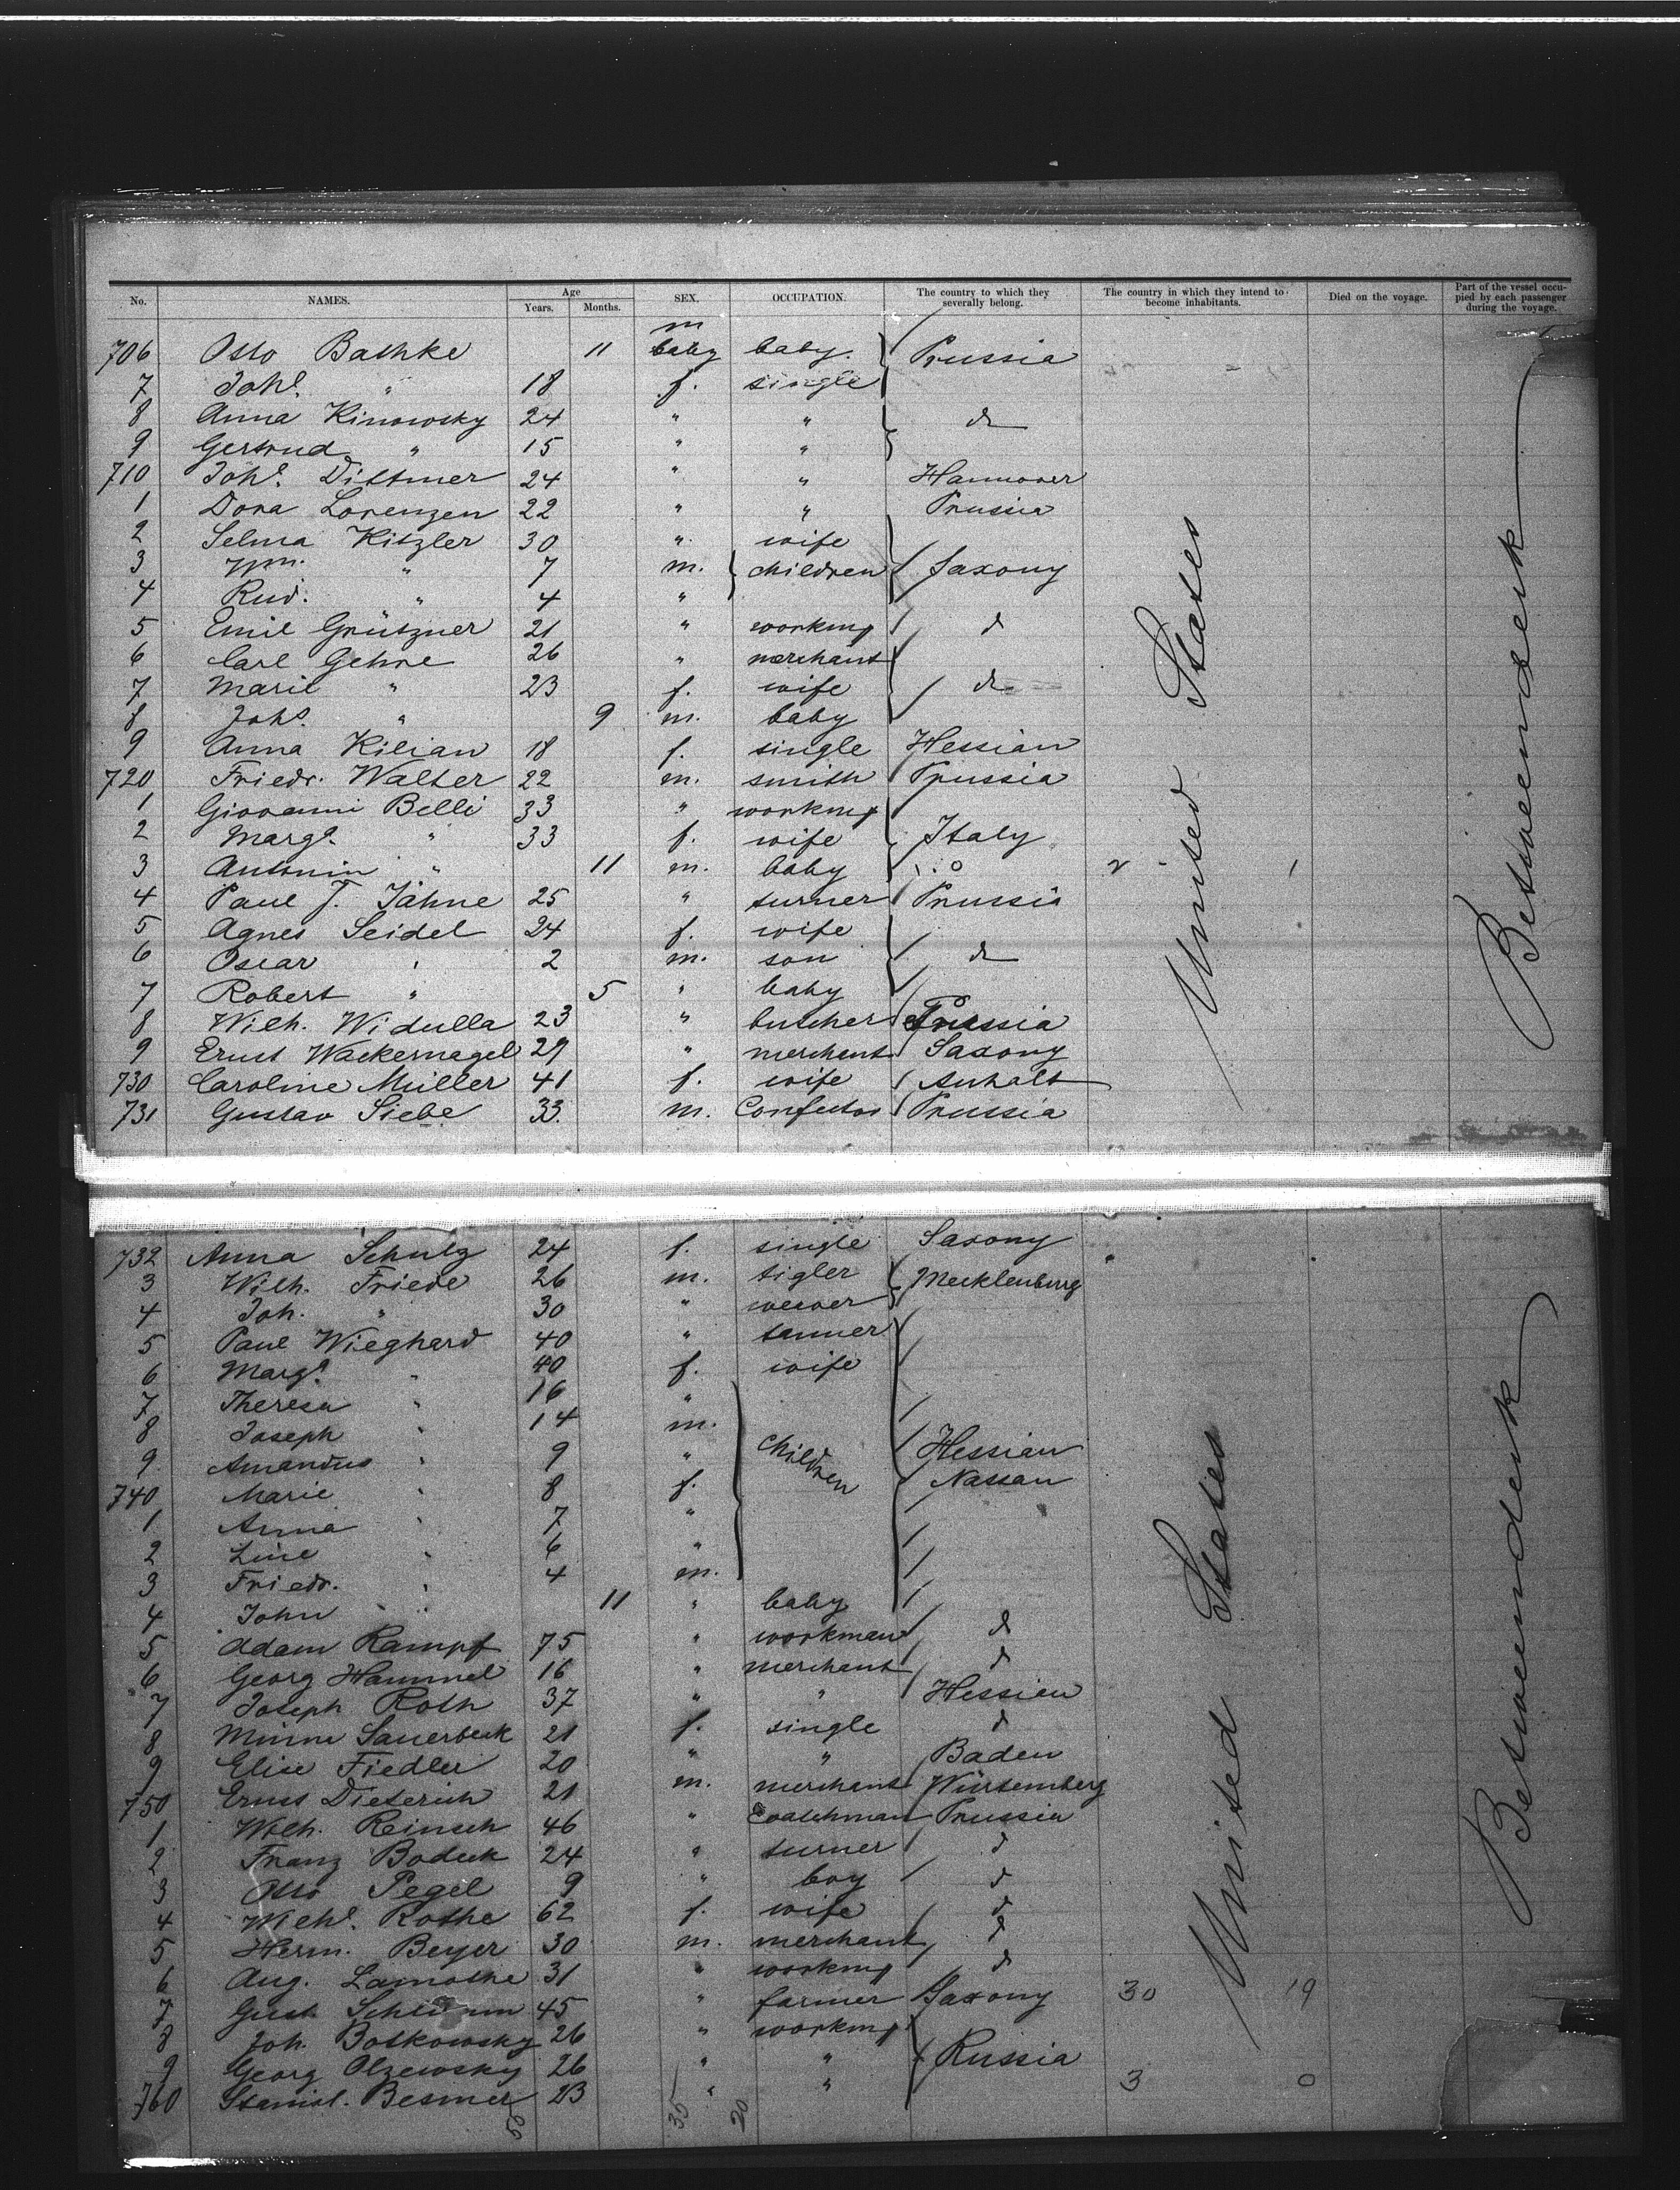 No. NAMES. Age Years. Months. SEX. OCCUPATION. The country to which they severally belong. The country in which they intend to become inhabitants. Died on the voyage. Part of the vessel occupied by each passenger during the voyage.
m
706 Otto Bathke 11 baby baby. Prussia
7 Joh.e " 18 f. single
8 Anna Kinowsky 24 " " do
9 Gertrud " 15 " "
710 Joh.e Dittmer 24 " " Hannover
1 Dora Lorenzen 22 " " Prussia
2 Selma Kitzler 30 " wife
3 Wm. " 7 m. children Saxony
4 Rud. " 4 "
5 Emil Grützner 21 " workmg d
6 Carl Gehre 26 " merchant
7 Marie " 23 f. wife do
8 Johs. " 9 m. baby
9 Anna Kilian 18 f. single Hessian
720 Friedr. Walter 22 m. smith Prussia
1 Giovanni Belli 33 " workmg
2 Marg.a " 33 f. wife Italy
3 Antonin " 11 m. baby 2 1
4 Paul F. Jähne 25 " turner Prussia
5 Agnes Seidel 24 f. wife
6 Oscar " 2 m. son do
7 Robert " 5 " baby
8 Wilh. Widulla 23 " butcher Prussia
9 Ernst Wackernagel 29 " merchant Saxony
730 Caroline Müller 41 f. wife Anhalt
731 Gustav Siebe 33. m. Confector Prussia
United States
Betweendeck
732 Anna Schulz 24 f. single Saxony
3 Wilh. Friede 26 m. tigler Mecklenburg
4 Joh. " 30 " weaver
5 Paul Wieghard 40 " tanner
6 Marg.a " 40 f. wife
7 Theresa " 16 "
8 Joseph " 14 m.
9 Amandus " 9 " children Hessian
740 Marie " 8 f. Nassau
1 Anna " 7 "
2 Line " 6 "
3 Friedr. " 4 m.
4 John " 11 " baby
5 Adam Rampf 75 " workman d
6 Georg Hammel 16 " merchant d
7 Joseph Roth 37 " " Hessian
8 Minna Sauerbeck 21 f. single d
9 Elise Fiedler 20 " " Baden
750 Ernst Dieterich 21 m. merchant Würtemberg
1 Wilh. Reinsch 46 " Coatchman Prussia
2 Franz Bodeck 24 " turner d
3 Otto Pegel 9 " boy d
4 Wilh.e Rothe 62 f. wife d
5 Herm. Beyer 30 m. merchant d
6 Aug. Lamothe 31 " workmg d
7 Gust. 45 " farmer Saxony 30 19
8 Joh. Botkowsky 26 " workmg
9 Georg Olzewsky 26 " " Russia
760 Stanisl. Besmer 23 " " 3 0
55 35 20
United States
Betweendeck